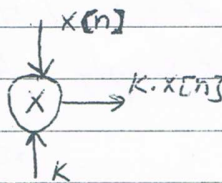 x[n]
X
K.x[n]
K